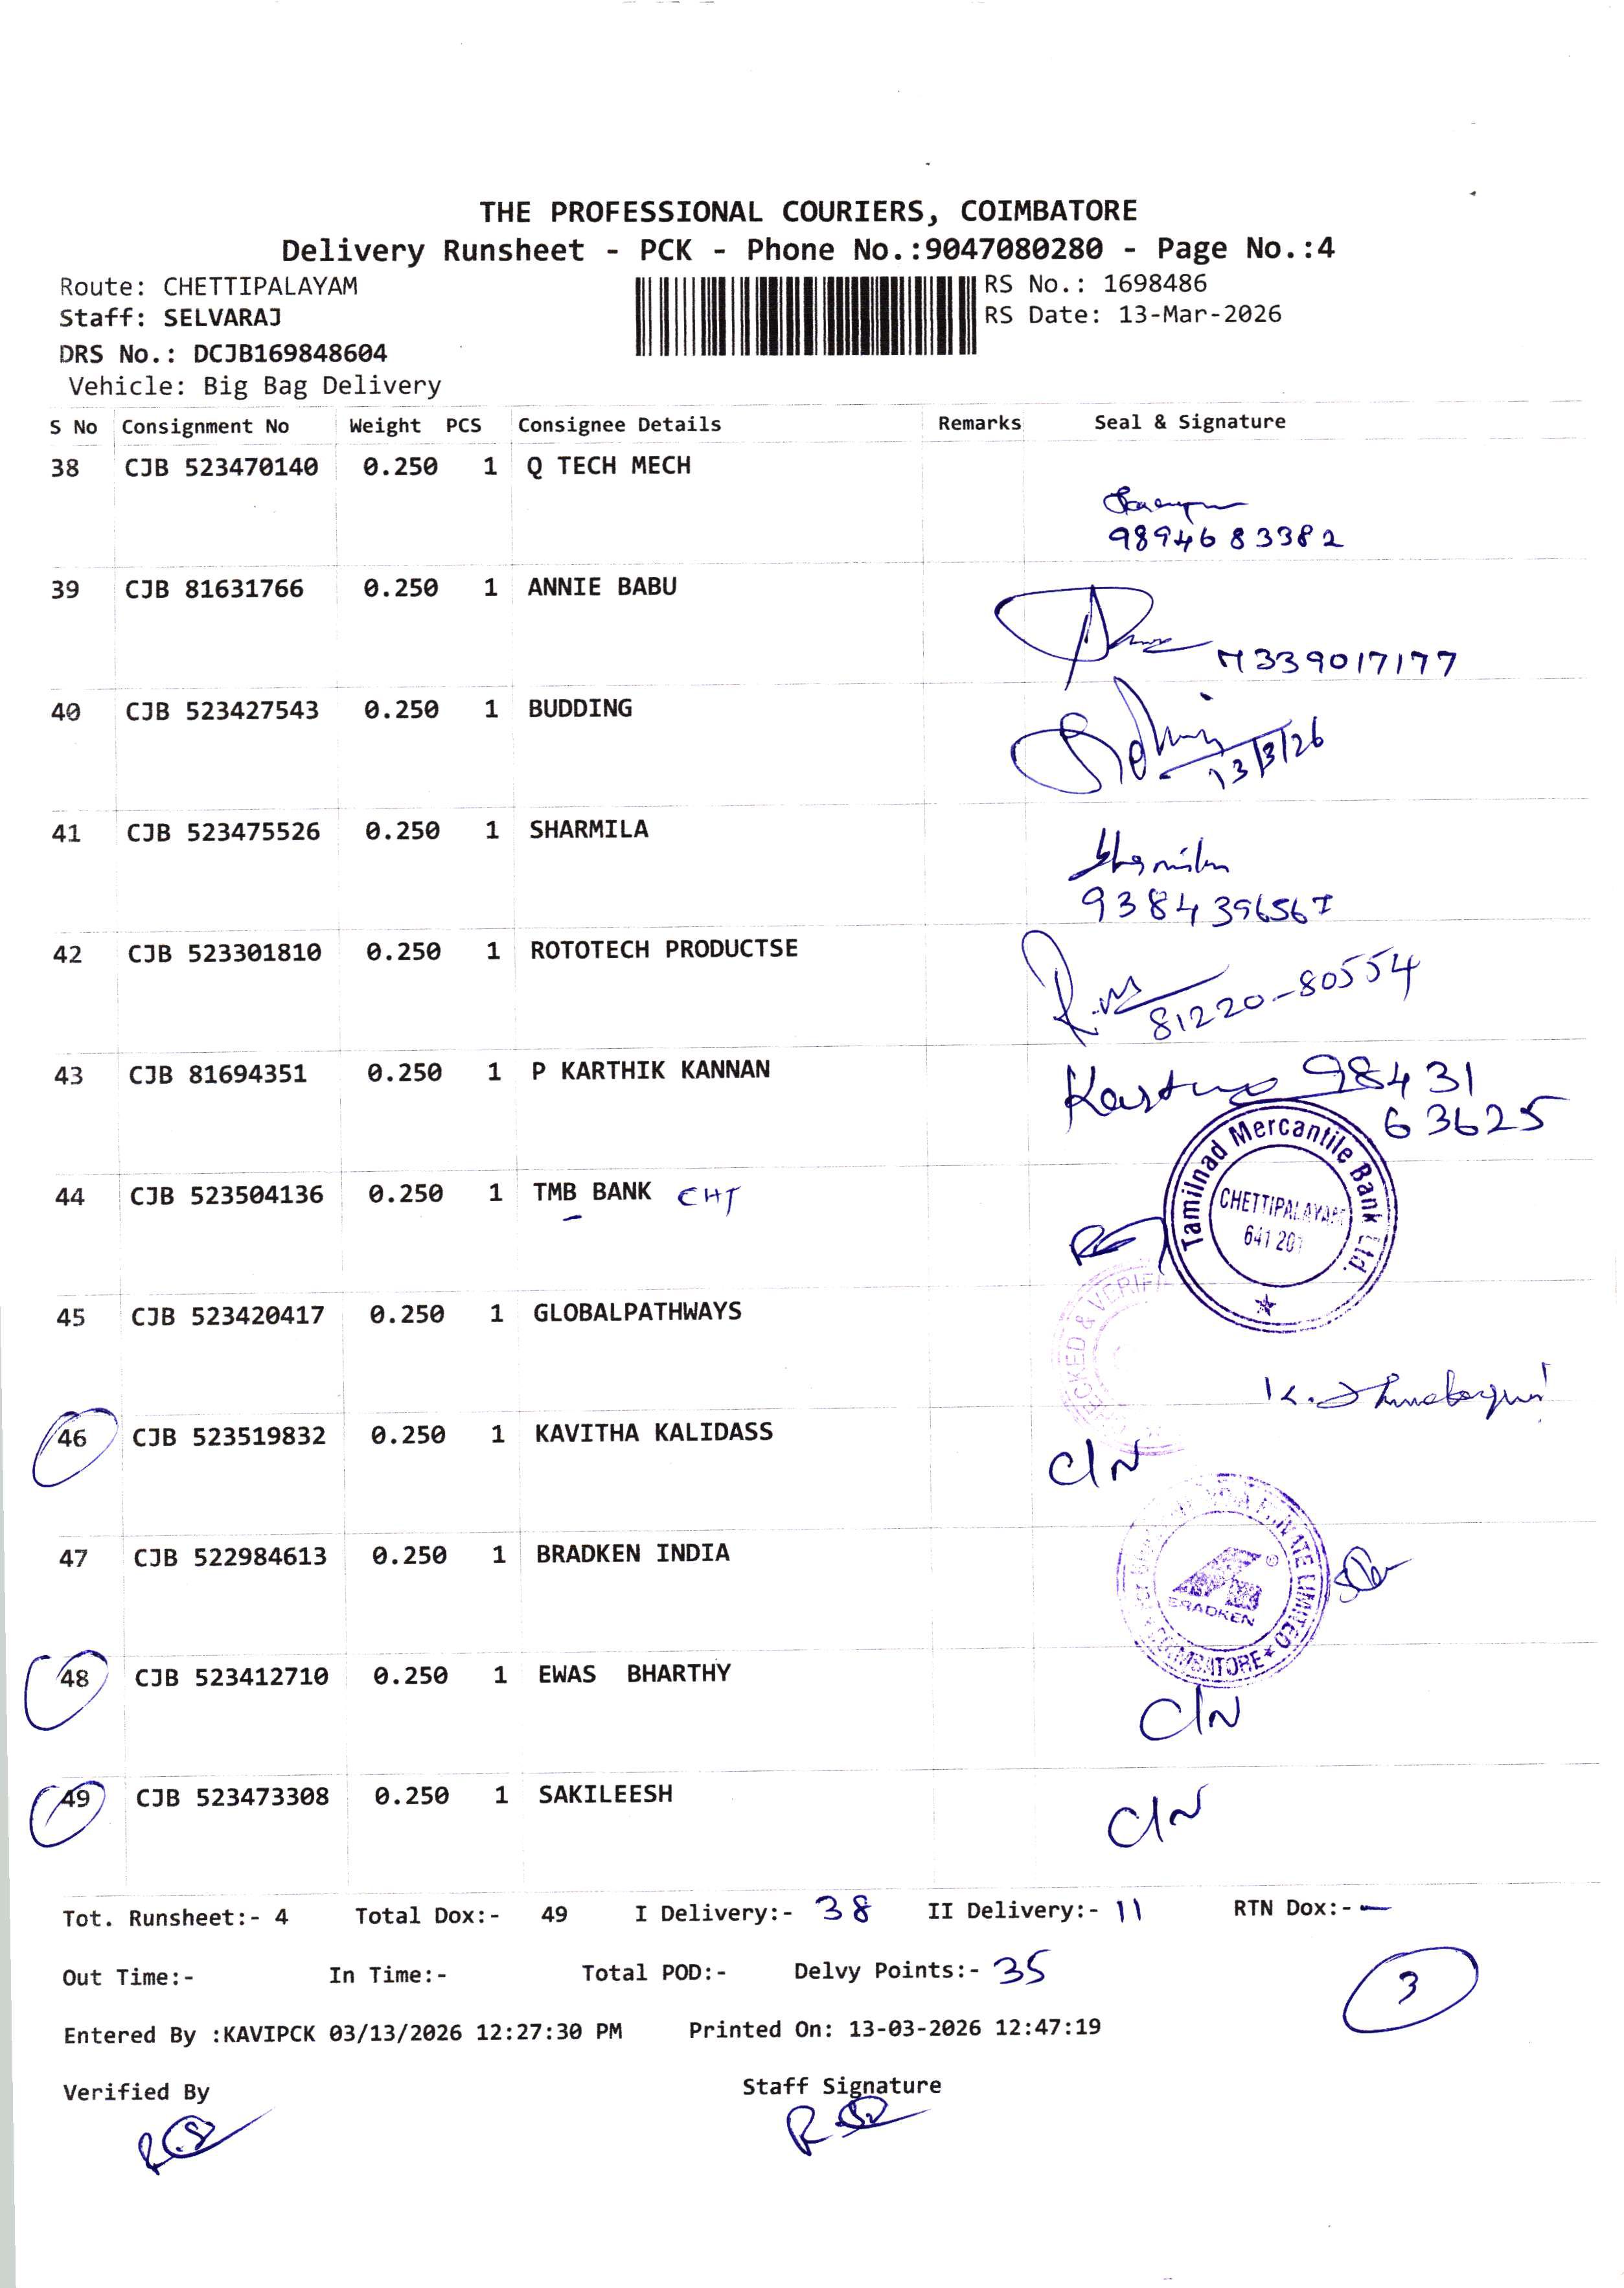 THE PROFESSIONAL COURIERS, COIMBATORE
Delivery Runsheet - PCK - Phone No.:9047080280 - Page No.:4
Route: CHETTIPALAYAM
RS No.: 1698486
Staff: SELVARAJ
RS Date: 13-Mar-2026
DRS No.: DCJB169848604
Vehicle: Big Bag Delivery
S No Consignment No Weight PCS Consignee Details Remarks Seal & Signature
38 CJB 523470140 0.250 1 Q TECH MECH
9894683382
39 CJB 81631766 0.250 1 ANNIE BABU
339017177
40 CJB 523427543 0.250 1 BUDDING
13/3/26
41 CJB 523475526 0.250 1 SHARMILA
42 CJB 523301810 0.250 1 ROTOTECH PRODUCTSE
81220-80554
43 CJB 81694351 0.250 1 P KARTHIK KANNAN
98431
63625
44 CJB 523504136 0.250 1 TMB BANK CHT
Tamilnad Mercantile Bank Ltd.
CHETTIPALAYAM
641 201
45 CJB 523420417 0.250 1 GLOBALPATHWAYS
46 CJB 523519832 0.250 1 KAVITHA KALIDASS
C/N
47 CJB 522984613 0.250 1 BRADKEN INDIA
BRADKEN
48 CJB 523412710 0.250 1 EWAS BHARTHY
C/N
49 CJB 523473308 0.250 1 SAKILEESH
C/N
Tot. Runsheet:- 4 Total Dox:- 49 I Delivery:- 38 II Delivery:- 11 RTN Dox:- —
Out Time:- In Time:- Total POD:- Delvy Points:- 35
3
Entered By :KAVIPCK 03/13/2026 12:27:30 PM Printed On: 13-03-2026 12:47:19
Verified By Staff Signature